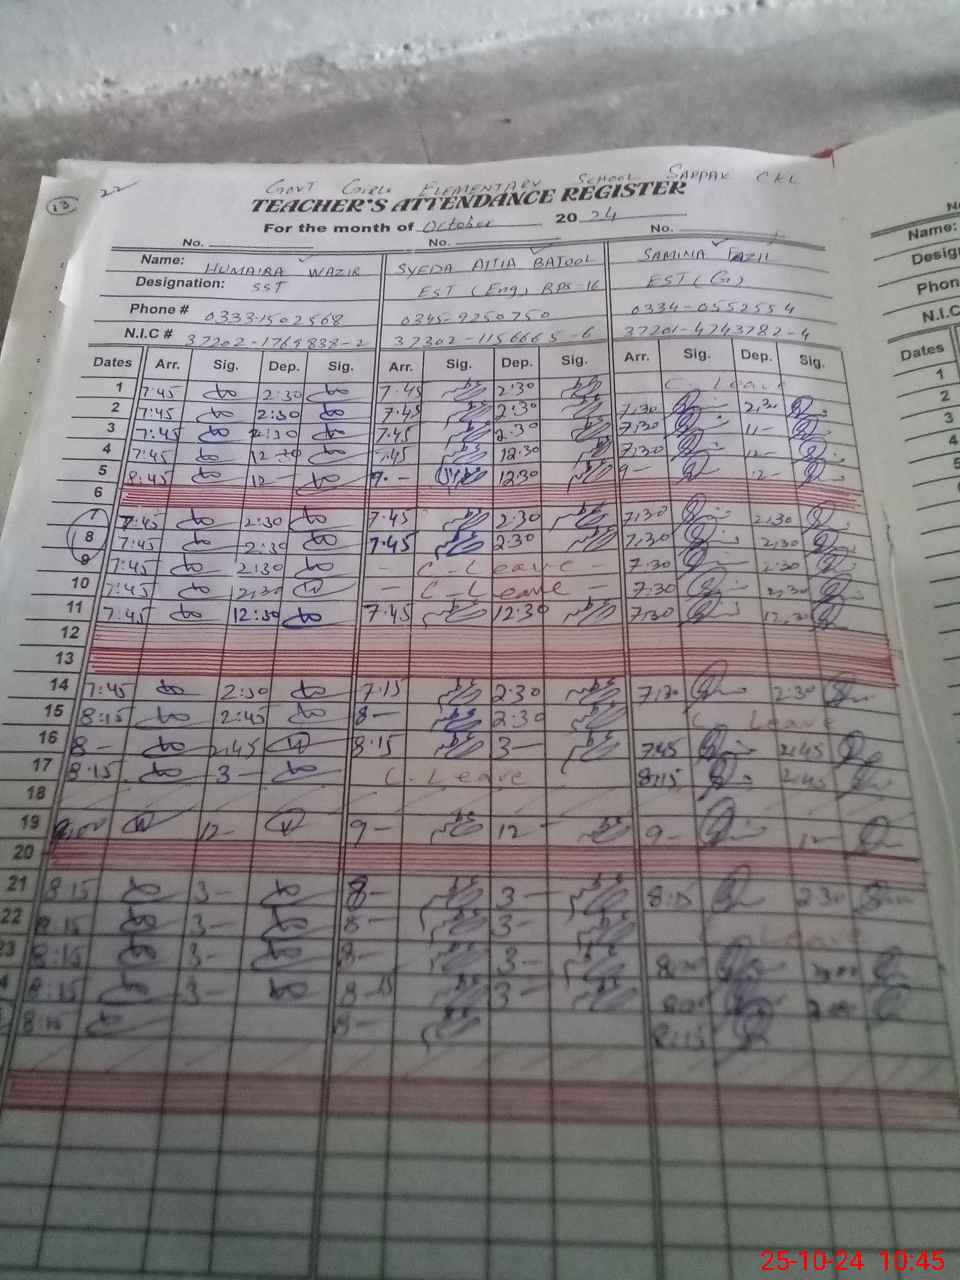 13 22
GOVT GIRLS ELEMENTARY SCHOOL SARPAK CKL
TEACHER'S ATTENDANCE REGISTER
For the month of October 2024
No. No. No.
Name: HUMAIRA WAZIR SYEDA ATTIA BATOOL SAMINA FAZIL
Designation: SST EST (Eng) BPS-16 EST (G)
Phone # 0333-1502568 0345-9250750 0334-0552554
N.I.C # 37202-1769838-2 37302-1156665-6 37201-4743782-4
Dates Arr. Sig. Dep. Sig. Arr. Sig. Dep. Sig. Arr. Sig. Dep. Sig.
1 7:45 2:30 7.45 2:30 C. Leave
2 7:45 2:30 7.45 2:30 7.30 2.30
3 7:45 2:30 7.45 2:30 7.30 11-
4 7:45 12 7.45 12.30 7.30 12-
5 8:45 12- 9.- 12:30 9- 12-
6
7 7:45 2:30 7.45 2:30 7.30 2.30
8 7:45 2:30 7.45 2:30 7.30 2.30
9 7:45 2:30 - C - Leave - 7.30 2.30
10 7:45 2:30 - C - Leave - 7.30 2.30
11 7:45 12:30 7.45 12.30 7.30 12.30
12
13
14 7:45 2:30 7.15 2.30 7.30 2.30
15 8:15 2:45 8- 2:30 C Leave
16 8- 2:45 8:15 3- 7.45 2.45
17 8:15 3- C. Leave 8:15 2:45
18
19 12- 9- 12 9- 12-
20
21 8:15 3- 8- 3- 8:15 2.30
22 8:15 3- 8- 3- Leave
23 8:15 3- 8- 3-
8:15 3- 8-15 3-
8:15 8- 8:15
Name:
Phone
N.I.C
Dates
1
2
3
4
5
25-10-24 10:45